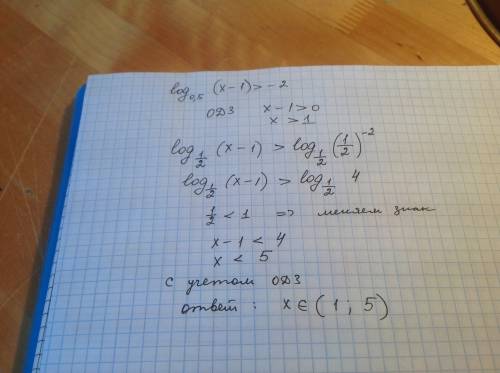 log₀,₅ (x-1) > -2
ОДЗ x-1>0
x > 1
log_{1/2} (x-1) > log_{1/2} (1/2)^{-2}
log_{1/2} (x-1) > log_{1/2} 4
1/2 < 1 => меняем знак
x-1 < 4
x < 5
с учетом ОДЗ
ответ: x ∈ (1; 5)